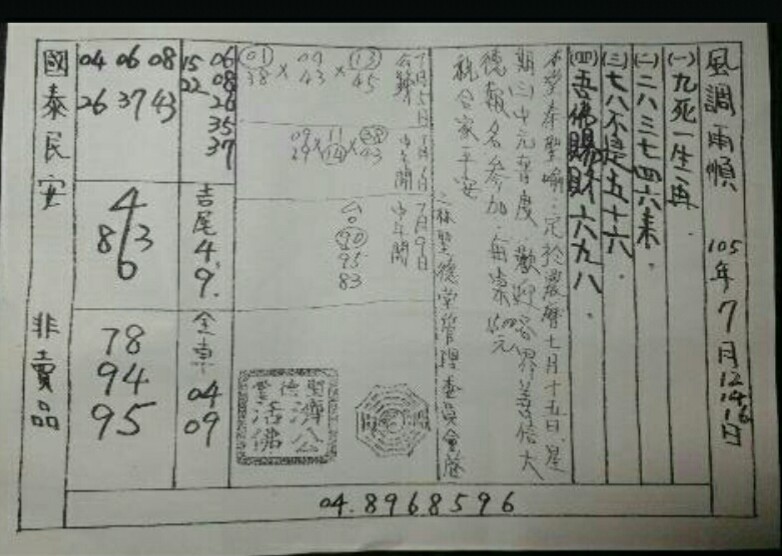 風調雨順
105年7月12.14.16日
(一)九死一生一再.
(二)二八三七四六来.
(三)七八不是五十六.
(四)吾佛賜財六九八.
本堂奉聖喻:定於農曆七月十五日是
期(三)中元普度,歡迎各界善信大
德報名参加.每桌
祝合家平安
聖德堂管理委員會啓
7月5日
01 38 × 09 43 × 13 45
7月6日
中
開
09 29 × 11 14 × 38 43
7月9日
中
開
台
90
95
83
聖德堂
濟公
活佛
15 06
22 08
26
35
37
吉尾4.9.
全車
04
09
04 06 08
26 37 43
4
8 3
6
78
94
95
國泰民安
非賣品
04.8968596